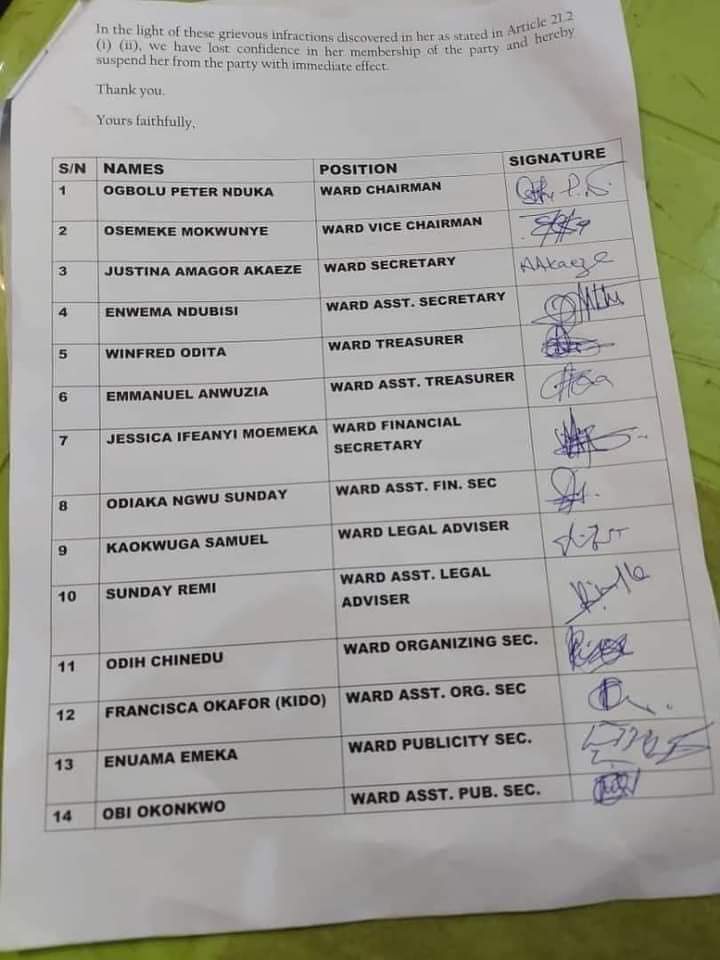 In the light of these grievous infractions discovered in her as stated in Article 21.2
(i) (ii), we have lost confidence in her membership of the party and hereby
suspend her from the party with immediate effect.
Thank you.
Yours faithfully,
S/N NAMES POSITION SIGNATURE
1 OGBOLU PETER NDUKA WARD CHAIRMAN
2 OSEMEKE MOKWUNYE WARD VICE CHAIRMAN
3 JUSTINA AMAGOR AKAEZE WARD SECRETARY AAkaeze
4 ENWEMA NDUBISI WARD ASST. SECRETARY
5 WINFRED ODITA WARD TREASURER
6 EMMANUEL ANWUZIA WARD ASST. TREASURER
7 JESSICA IFEANYI MOEMEKA WARD FINANCIAL
SECRETARY
8 ODIAKA NGWU SUNDAY WARD ASST. FIN. SEC
9 KAOKWUGA SAMUEL WARD LEGAL ADVISER
10 SUNDAY REMI WARD ASST. LEGAL
ADVISER
11 ODIH CHINEDU WARD ORGANIZING SEC.
12 FRANCISCA OKAFOR (KIDO) WARD ASST. ORG. SEC
13 ENUAMA EMEKA WARD PUBLICITY SEC.
14 OBI OKONKWO WARD ASST. PUB. SEC.